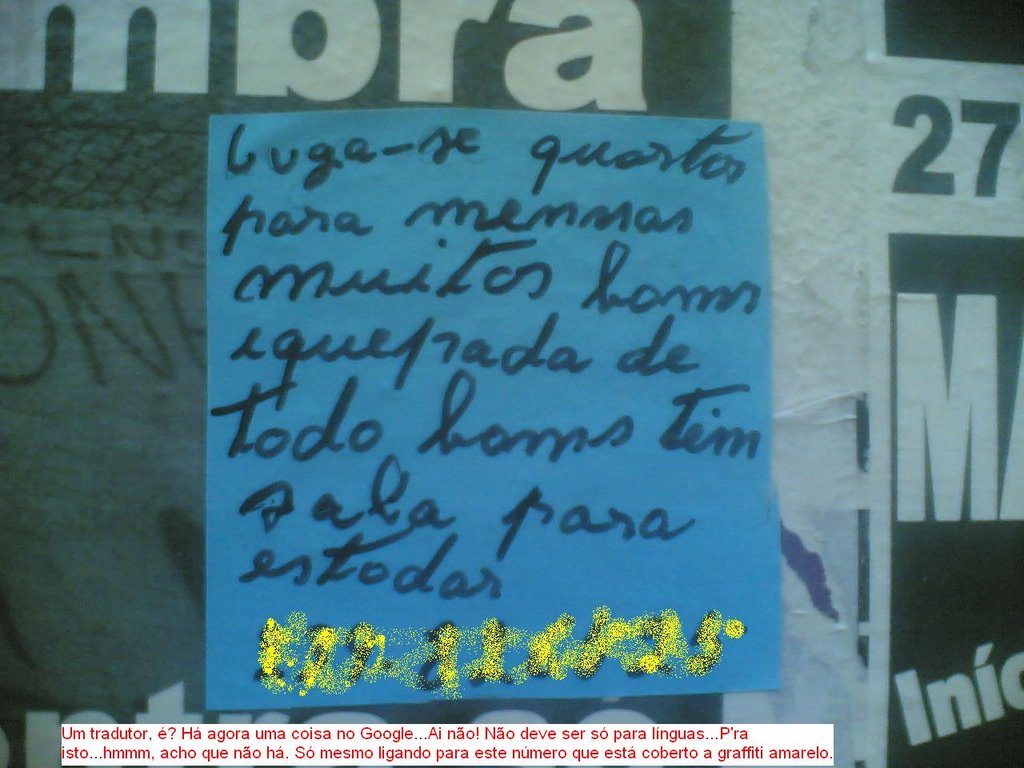 mbra
luga-se quartos
para mennas
muitos boms
equeprada de
todo boms tem
sala para
estodar
27
MA
Iníc
Um tradutor, é? Há agora uma coisa no Google...Ai não! Não deve ser só para línguas...P'ra
isto...hmmm, acho que não há. Só mesmo ligando para este número que está coberto a graffiti amarelo.